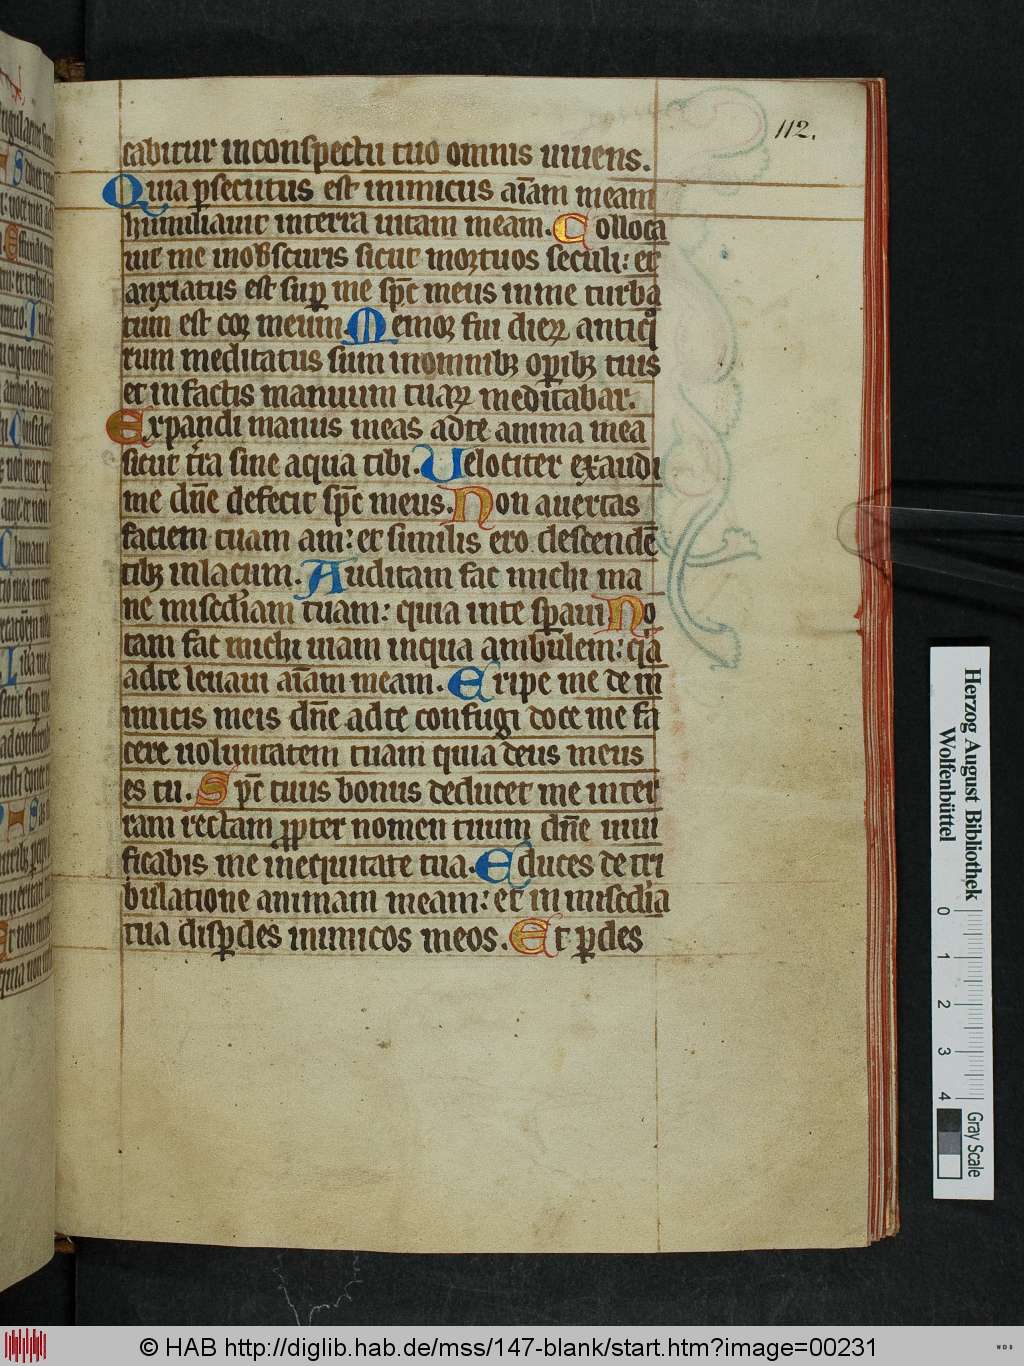 112.
cabitur inconspectu tuo omnis uiuens.
Quia ꝑsecutus est inimicus aīam meam
humiliauit interra uitam meam. Colloca
uit me inobscuris sicut moꝛtuos seculi: et
anxiatus est suꝑ me sp̄c meus inme turba
tum est coꝛ meum. Memoꝛ fui dieꝝ antiq͛
rum meditatus sum inomnibꝫ oꝑibꝫ tuis
et in factis manuum tuaꝝ meditabar.
Expandi manus meas adte anima mea
sicut t͛ra sine aqua tibi. Uelociter exaudi
me dn̄e defecit sp̄c meus. Non auertas
faciem tuam am: et similis ero descendē
tibꝫ inlacum. Auditam fac michi ma
ne mis͛cdiam tuam: quia inte sꝑaui No
tam fac michi uiam inqua ambulem: q͛a
adte leuaui aīam meam. Eripe me de in
imicis meis dn̄e adte confugi doce me fa
cere uoluntatem tuam quia deus meus
es tu. Sp̄c tuus bonus deducet me inter
ram rectam ꝓpter nomen tuum dn̄e uiui
ficabis me inequitate tua. Educes de tri
bulatione animam meam: et in mis͛cdia
tua disꝑdes inimicos meos. Et ꝑdes
Herzog August Bibliothek
Wolfenbüttel
0 1 2 3 4
Gray Scale
© HAB http://diglib.hab.de/mss/147-blank/start.htm?image=00231